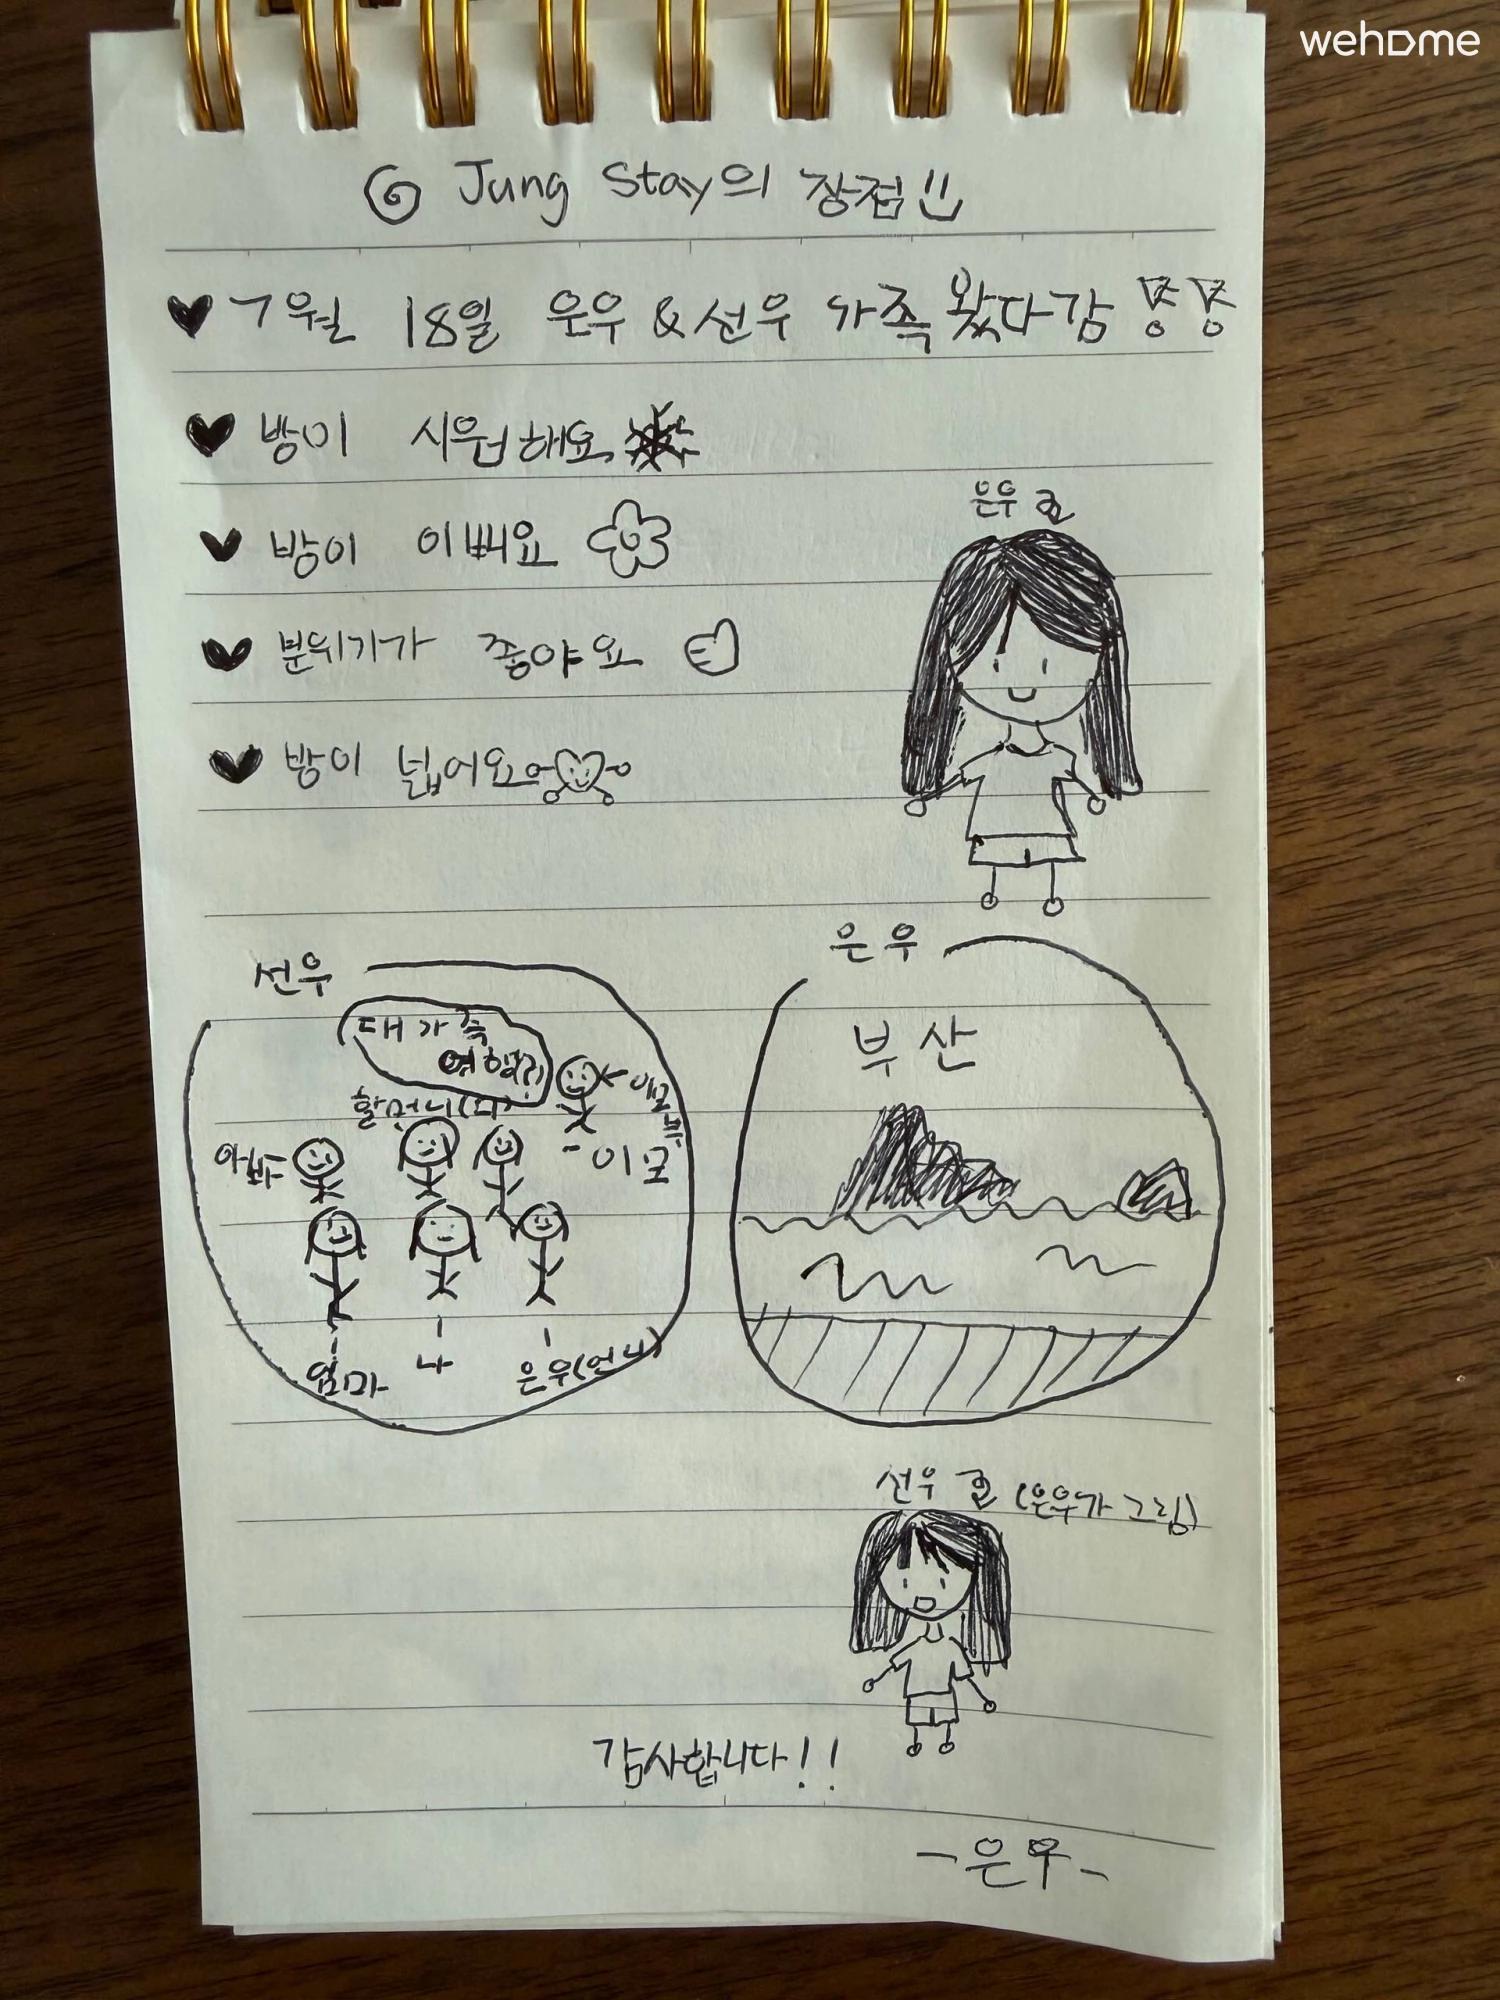 wehome
Jung Stay의 장점
7월 18일 은우 & 선우 가족 왔다감
방이 시원해요
방이 이뻐요
분위기가 좋아요
방이 넓어요
은우
선우
대가족
여행
할머니
아빠
이모부
이모
엄마
나
은우(언니)
은우
부산
선우 (은우가 그림)
감사합니다!!
-은우-